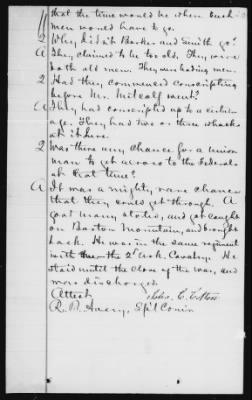 that the time would be when such
men would have to go.
Q Why didn't Barker and Smith go?
A They claimed to be too old. They were
both old men. They was hiding men.
Q Had they commenced conscripting
before Mr. Metcalf went?
A They had conscripted up to a certain
age. They had two or three whacks
at it here.
Q Was there any chance for a Union
man to get across to the Federals
at that time?
A It was a mighty rare chance
that they could get through. A
goat many started, and got caught
on Boston Mountain, and brought
back. He was in the same regiment
with me the 2d Ark. Cavalry. He
staid until the close of the war, and
was discharged.
Attest
R. B. Avery, Sp'l Com'r